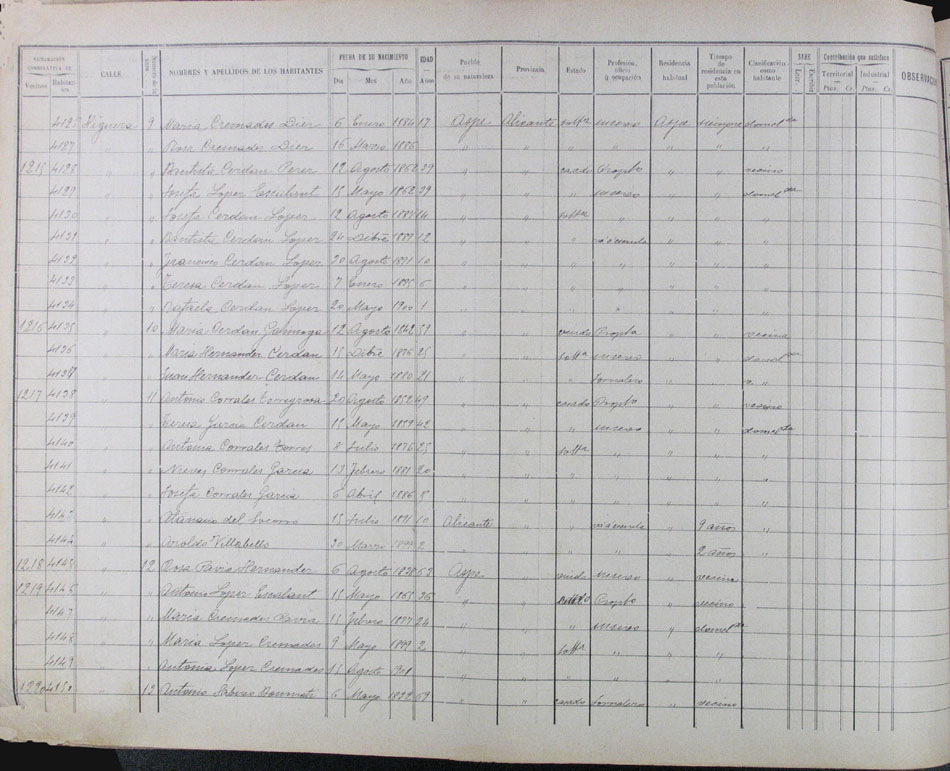 NUMERACIÓN CORRELATIVA DE Vecinos Habitantes CALLE NOMBRES Y APELLIDOS DE LOS HABITANTES FECHA DE SU NACIMIENTO Día Mes Año EDAD Años Pueblo de su naturaleza Provincia Estado Profesión, oficio u ocupación Residencia habitual Tiempo de residencia en esta población Clasificación como habitante SABE Leer Escribir Contribución que satisface Territorial Ptas. Cs. Industrial Ptas. Cs. OBSERVACIO
Higuera 9 Maria Cremades Dier 6 Enero 1884 17 Aspe Alicante soltra su sexo Aspe siempre domelda
4127 " " Rosa Cremades Dier 16 Marzo 1886 " " " " " " "
1215 4128 " " Bautista Cerdan Perez 12 Agosto 1862 39 " " casdo Propto " " vecino
4129 " " Josefa Lopez Escribant 15 Mayo 1862 39 " " " su sexo " " domelda
4130 " " Josefa Cerdan Lopez 12 Agosto 14 " " soltra " " " "
4131 " " Bautista Cerdan Lopez 24 Dibre 1889 12 " " " " " "
4132 " " Francisco Cerdan Lopez 20 Agosto 1891 10 " " " " " " "
4133 " " Teresa Cerdan Lopez 7 Enero 1895 6 " " " " " " "
4134 " " Rafaela Cerdan Lopez 20 Mayo 1900 1 " " " " " " "
1216 4135 " 10 Maria Cerdan 12 Agosto 1842 59 " " viuda Propta " " vecina
4136 " " Maria Hernandez Cerdan 15 Dibre 1876 25 " " soltra su sexo " " domelda
4137 " " Juan Hernandez Cerdan 14 Mayo 1880 21 " " " Jornalero " " "
1217 4138 " 11 Antonio Corrales Torregrosa 20 Agosto 1852 49 " " casado Propto " " vecino
4139 " " Teresa Garcia Cerdan 15 Mayo 1859 42 " " " su sexo " " domelda
4140 " " Antonia Corrales 8 Julio 1876 25 " " soltra " " " "
4141 " " Nieves Corrales Garcia 13 Febrero 1881 20 " " " " " " "
4142 " " Josefa Corrales Garcia 6 Abril 1886 " " " " " " "
4143 " " del Socorro 15 Julio 1891 10 Alicante " " " 9 años "
4144 " " Aroldo Villabello 20 Marzo 1899 2 " " " " " 2 años "
1218 4145 " 12 Rosa Pavia Hernandez 6 Agosto 1838 63 Aspe " viuda su sexo " " vecina
1219 4146 " " Antonio Lopez Escribant 15 Mayo 1865 36 " " Propto " " vecino
4147 " " Maria Cremades Pavia 15 Febrero 1877 24 " " " su sexo " " domelda
4148 " " Maria Lopez Cremades 9 Mayo 1899 2 " " soltra " " " "
4149 " " Antonia Lopez Cremades 15 Agosto 1901 " " " " " " "
1220 4150 " 13 Antonio 6 Mayo 1832 69 " " casado Jornalero " " vecino